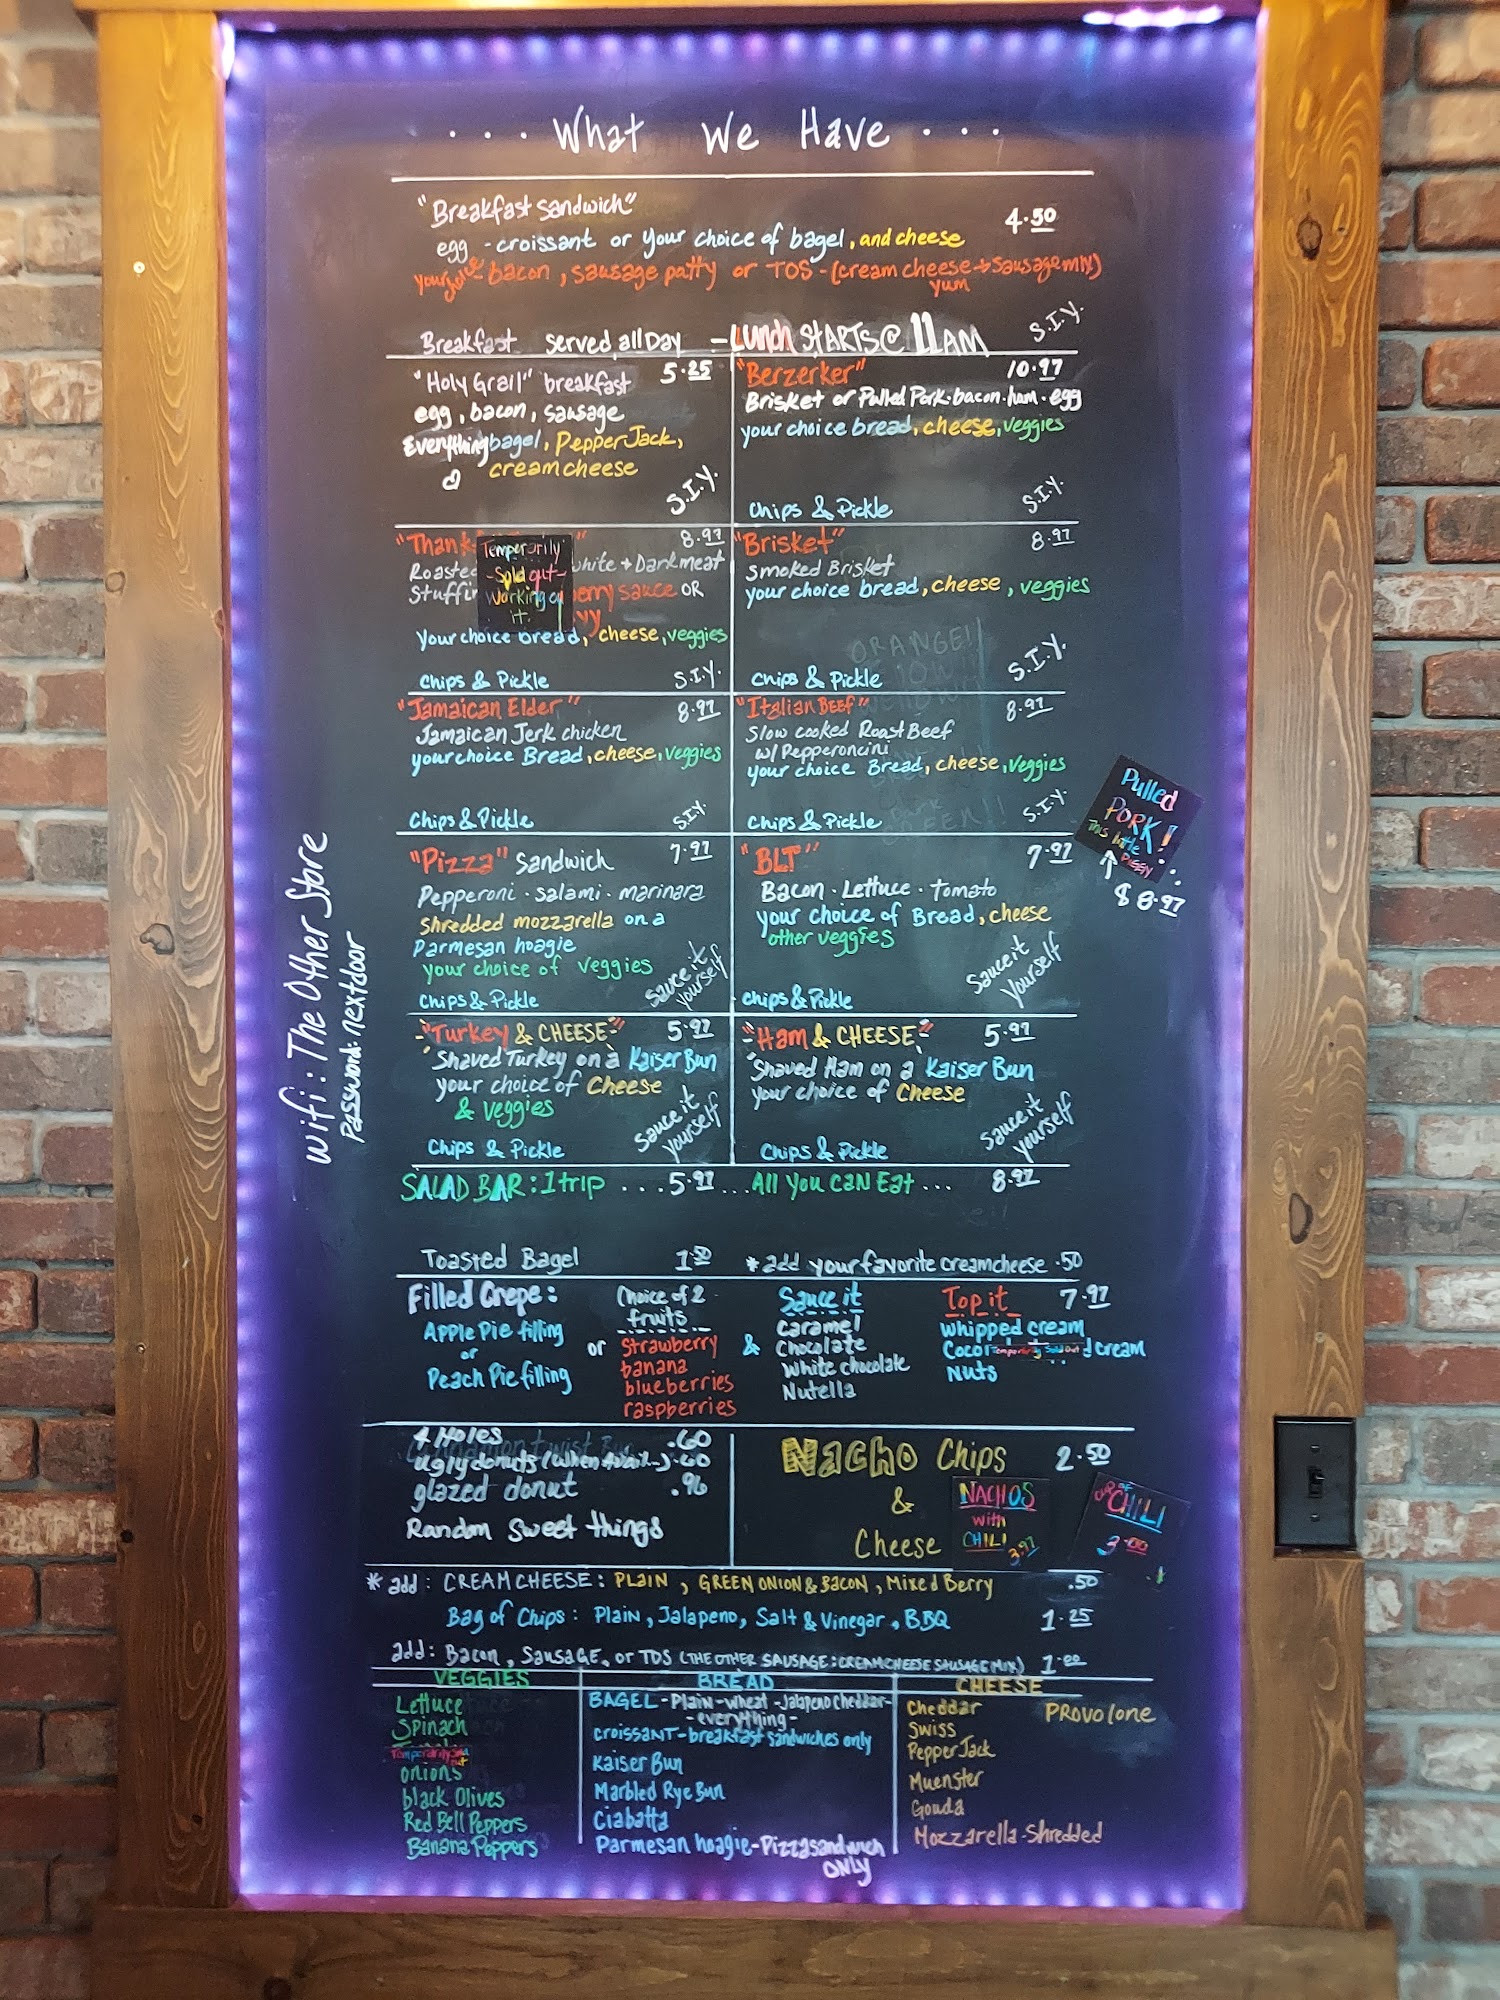 ... What We Have ...
"Breakfast sandwich" 4.50
egg - croissant or your choice of bagel, and cheese
your choice - bacon, sausage patty or TOS - (cream cheese + sausage mix)
yum
Breakfast served all Day - Lunch STARTS @ 11 AM S.I.Y.
"Holy Grail" breakfast 5.25
egg, bacon, sausage
Everything bagel, Pepper Jack,
cream cheese
S.I.Y.
"Berzerker" 10.97
Brisket or Pulled Pork. bacon. ham. egg
your choice bread, cheese, veggies
Chips & Pickle S.I.Y.
"Thank 8.97
Roasted white + Dark meat
Stuffin berry sauce OR
your choice bread, cheese, veggies
Chips & Pickle S.I.Y.
Temporarily
- Sold out -
working on
it.
"Brisket" 8.97
smoked Brisket
your choice bread, cheese, veggies
Chips & Pickle S.I.Y.
"Jamaican Elder" 8.97
Jamaican Jerk chicken
your choice Bread, cheese, veggies
Chips & Pickle S.I.Y.
"Italian BEEF" 8.97
Slow cooked Roast Beef
w/ Pepperoncini
your choice Bread, cheese, veggies
Chips & Pickle S.I.Y.
Pulled
PORK!
This little
PIGGY
$8.97
"Pizza" Sandwich 7.97
Pepperoni · salami · marinara
shredded mozzarella on a
Parmesan hoagie
your choice of veggies
Chips & Pickle
Sauce it
yourself
"BLT" 7.97
Bacon · Lettuce · tomato
your choice of Bread, cheese
other veggies
Chips & Pickle
Sauce it
yourself
Wifi: The Other Store
Password: nextdoor
"Turkey & CHEESE" 5.97
Shaved Turkey on a Kaiser Bun
your choice of Cheese
& veggies
Chips & Pickle
Sauce it
yourself
"Ham & CHEESE" 5.97
Shaved Ham on a Kaiser Bun
your choice of Cheese
Chips & Pickle
Sauce it
yourself
SALAD BAR: 1 trip ... 5.97 ... All You CAN Eat ... 8.97
Toasted Bagel 1.50 * add your favorite creamcheese .50
Filled Crepe:
Apple Pie filling
or
Peach Pie filling
or
Choice of 2
fruits
Strawberry
banana
blueberries
raspberries
&
Sauce it
Caramel
Chocolate
White chocolate
Nutella
Top it 7.97
whipped cream
Cocon Temporarily Sold Out d cream
Nuts
4 Holes .60
ugly donuts (when Avail..) .60
glazed donut .96
Random sweet things
Nacho Chips 2.50
&
Cheese
NACHOS
with
CHILI 3.97
CUP OF
CHILI
3.00
* add: CREAM CHEESE: PLAIN, GREEN ONION & BACON, Mixed Berry .50
Bag of Chips: Plain, Jalapeno, Salt & Vinegar, BBQ 1.25
add: Bacon, Sausage, or TOS (THE OTHER SAUSAGE: CREAMCHEESE SAUSAGE MIX) 1.00
VEGGIES
Lettuce
Spinach
Temporarily Sold out
onions
black Olives
Red Bell Peppers
Banana Peppers
BREAD
BAGEL - Plain - wheat - Jalapeno cheddar -
- everything -
croissant - breakfast sandwiches only
Kaiser Bun
Marbled Rye Bun
Ciabatta
Parmesan hoagie - Pizza sandwich
ONLY
CHEESE
Cheddar Provolone
Swiss
Pepper Jack
Muenster
Gouda
Mozzarella - Shredded